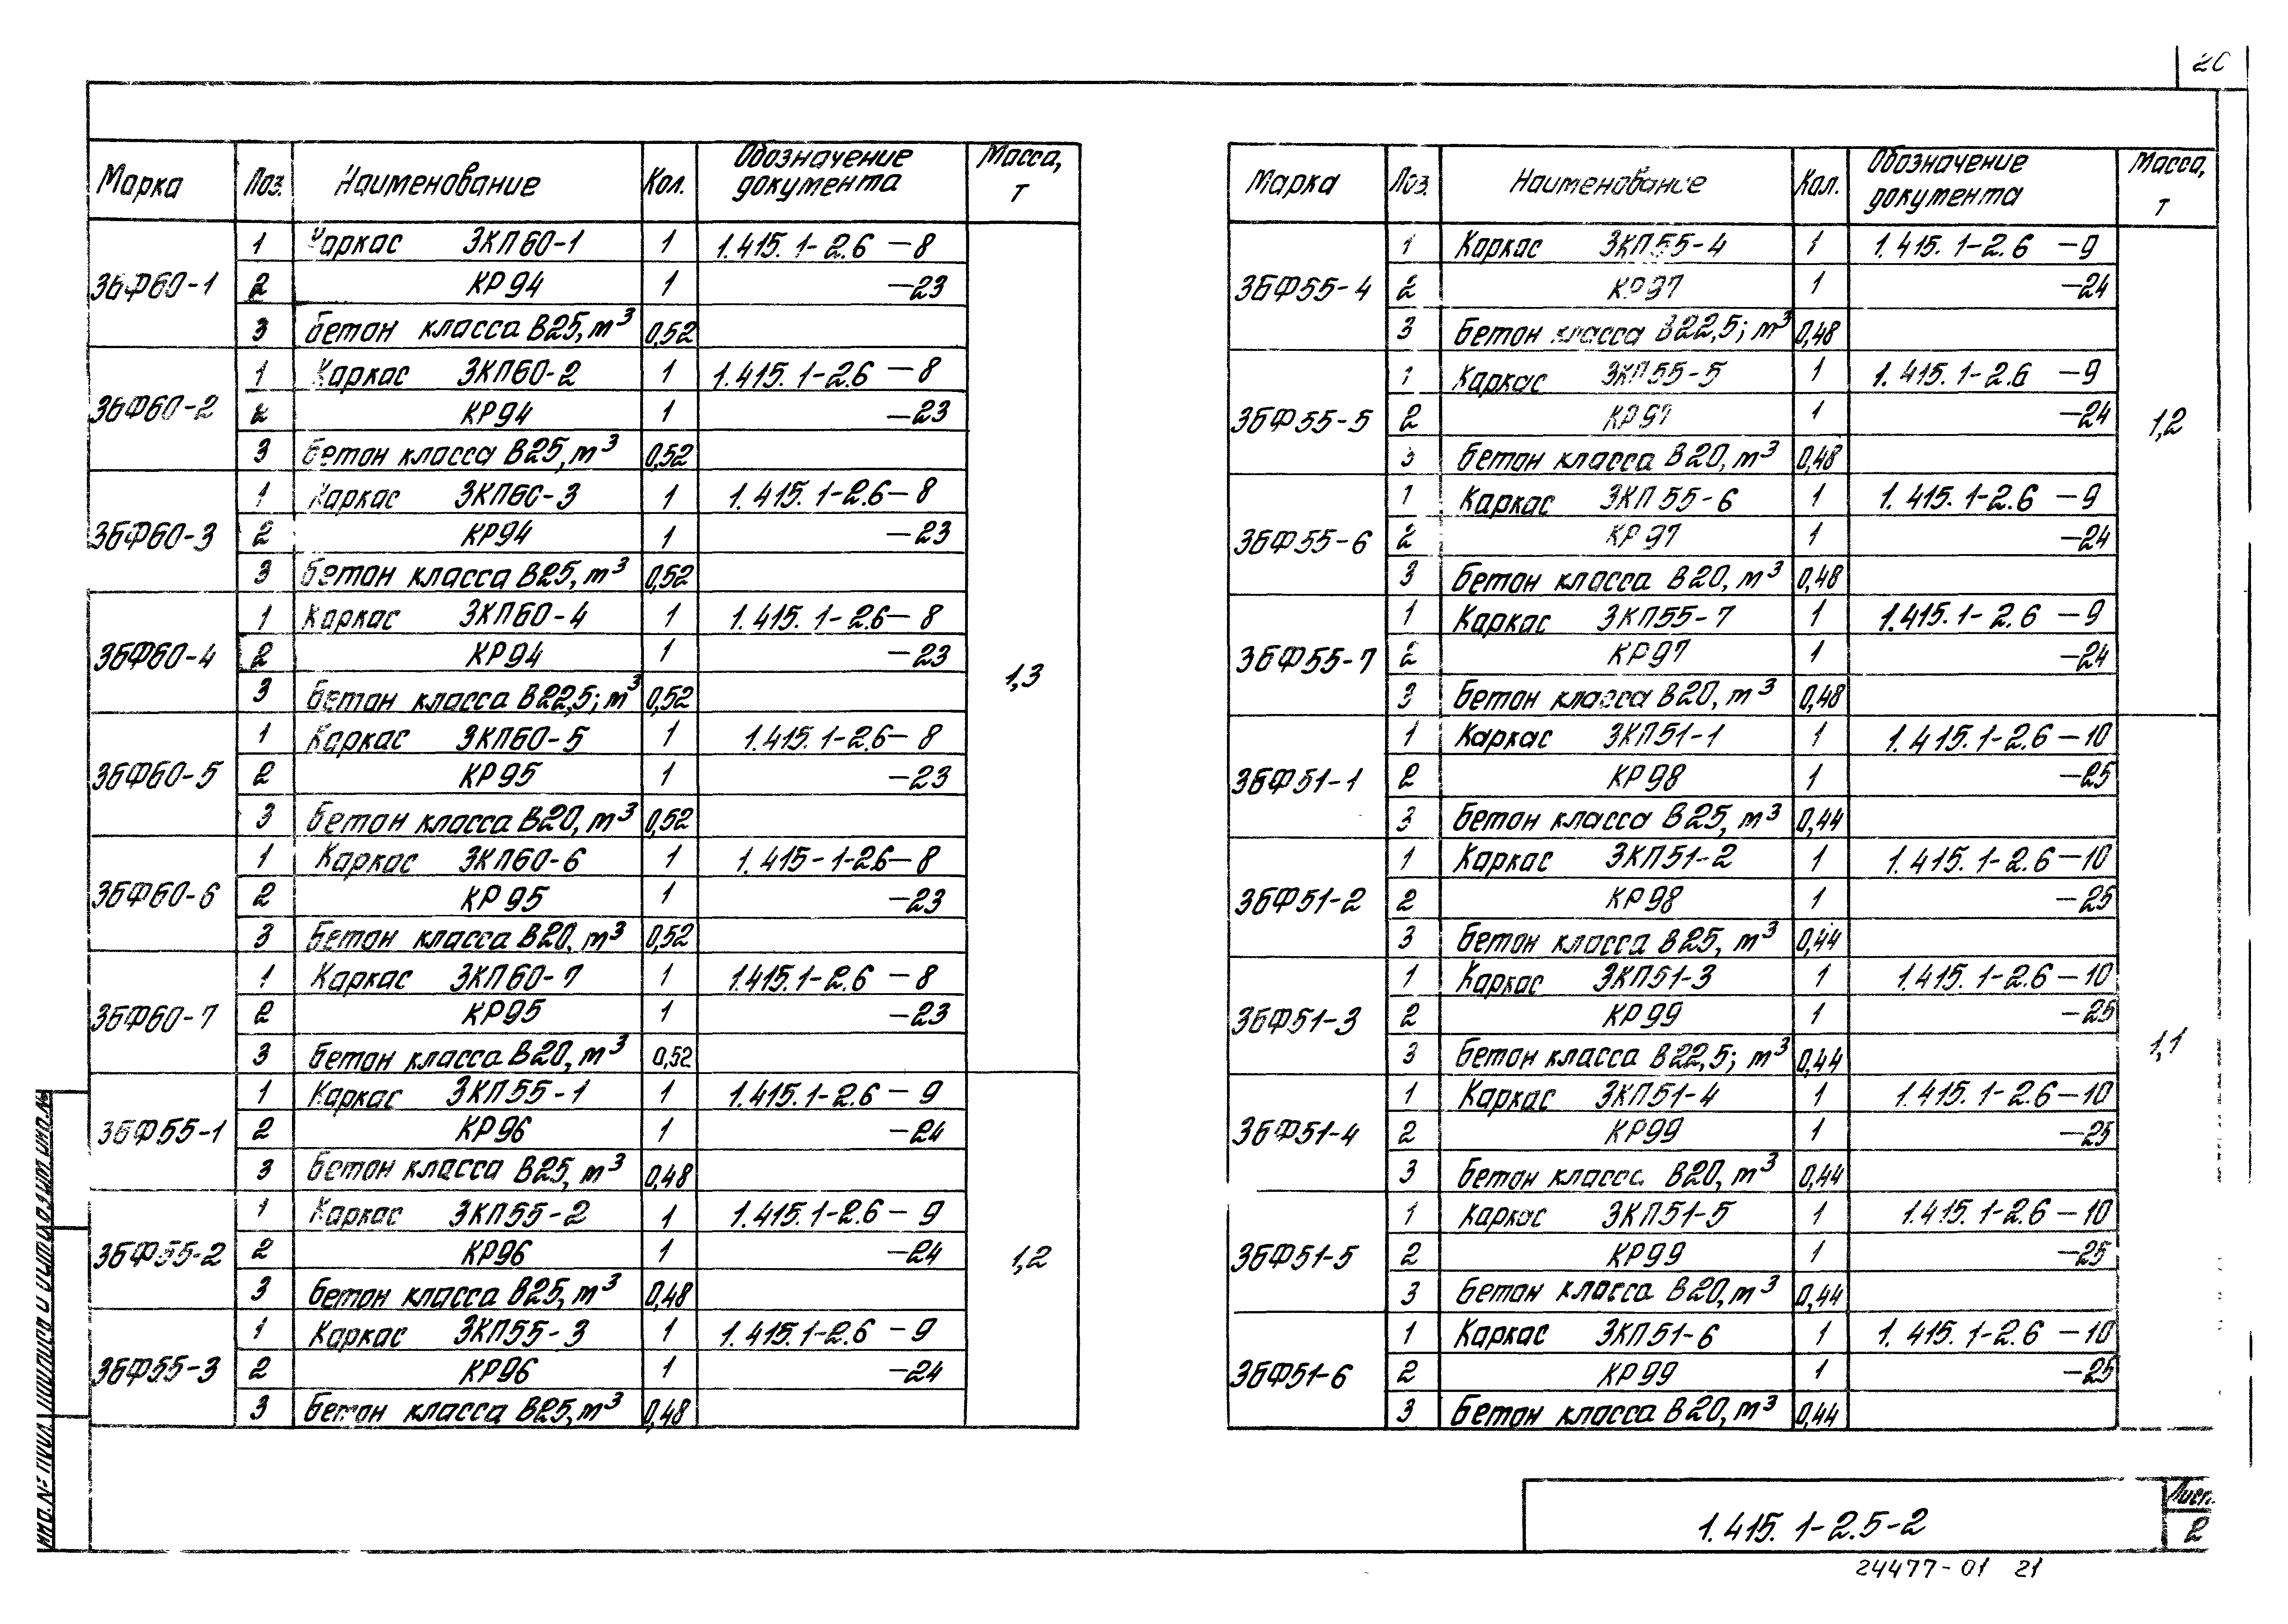 20
Марка Поз. Наименование Кол. Обозначение документа Масса, т
3БФ60-1 1 Каркас 3КП60-1 1 1.415.1-2.6 -8
2 КР94 1 -23
3 Бетон класса В25, м³ 0,52
3БФ60-2 1 Каркас 3КП60-2 1 1.415.1-2.6 -8
2 КР94 1 -23
3 Бетон класса В25, м³ 0,52
3БФ60-3 1 Каркас 3КП60-3 1 1.415.1-2.6-8
2 КР94 1 -23
3 Бетон класса В25, м³ 0,52
3БФ60-4 1 Каркас 3КП60-4 1 1.415.1-2.6-8
2 КР94 1 -23
1,3
3 Бетон класса В22,5; м³ 0,52
3БФ60-5 1 Каркас 3КП60-5 1 1.415.1-2.6-8
2 КР95 1 -23
3 Бетон класса В20, м³ 0,52
3БФ60-6 1 Каркас 3КП60-6 1 1.415-1-2.6-8
2 КР95 1 -23
3 Бетон класса В20, м³ 0,52
3БФ60-7 1 Каркас 3КП60-7 1 1.415.1-2.6 -8
2 КР95 1 -23
3 Бетон класса В20, м³ 0,52
3БФ55-1 1 Каркас 3КП55-1 1 1.415.1-2.6 - 9
2 КР96 1 -24
3 Бетон класса В25, м³ 0,48
3БФ55-2 1 Каркас 3КП55-2 1 1.415.1-2.6 - 9
2 КР96 1 -24
1,2
3 Бетон класса В25, м³ 0,48
3БФ55-3 1 Каркас 3КП55-3 1 1.415.1-2.6 -9
2 КР96 1 -24
3 Бетон класса В25, м³ 0,48
Марка Поз. Наименование Кол. Обозначение документа Масса, т
3БФ55-4 1 Каркас 3КП55-4 1 1.415.1-2.6 -9
2 КР97 1 -24
3 Бетон класса В22,5; м³ 0,48
3БФ55-5 1 Каркас 3КП55-5 1 1.415.1-2.6 -9
2 КР97 1 -24
1,2
3 Бетон класса В20, м³ 0,48
3БФ55-6 1 Каркас 3КП55-6 1 1.415.1-2.6 -9
2 КР97 1 -24
3 Бетон класса В20, м³ 0,48
3БФ55-7 1 Каркас 3КП55-7 1 1.415.1-2.6 -9
2 КР97 1 -24
3 Бетон класса В20, м³ 0,48
3БФ51-1 1 Каркас 3КП51-1 1 1.415.1-2.6-10
2 КР98 1 -25
3 Бетон класса В25, м³ 0,44
3БФ51-2 1 Каркас 3КП51-2 1 1.415.1-2.6-10
2 КР98 1 -25
3 Бетон класса В25, м³ 0,44
3БФ51-3 1 Каркас 3КП51-3 1 1.415.1-2.6-10
2 КР99 1 -25
1,1
3 Бетон класса В22,5; м³ 0,44
3БФ51-4 1 Каркас 3КП51-4 1 1.415.1-2.6-10
2 КР99 1 -25
3 Бетон класса В20, м³ 0,44
3БФ51-5 1 Каркас 3КП51-5 1 1.415.1-2.6-10
2 КР99 1 -25
3 Бетон класса В20, м³ 0,44
3БФ51-6 1 Каркас 3КП51-6 1 1.415.1-2.6 -10
2 КР99 1 -25
3 Бетон класса В20, м³ 0,44
Инв. № подл. Подпись и дата Взам. инв. №
1.415.1-2.5-2
Лист
2
24477-01 21